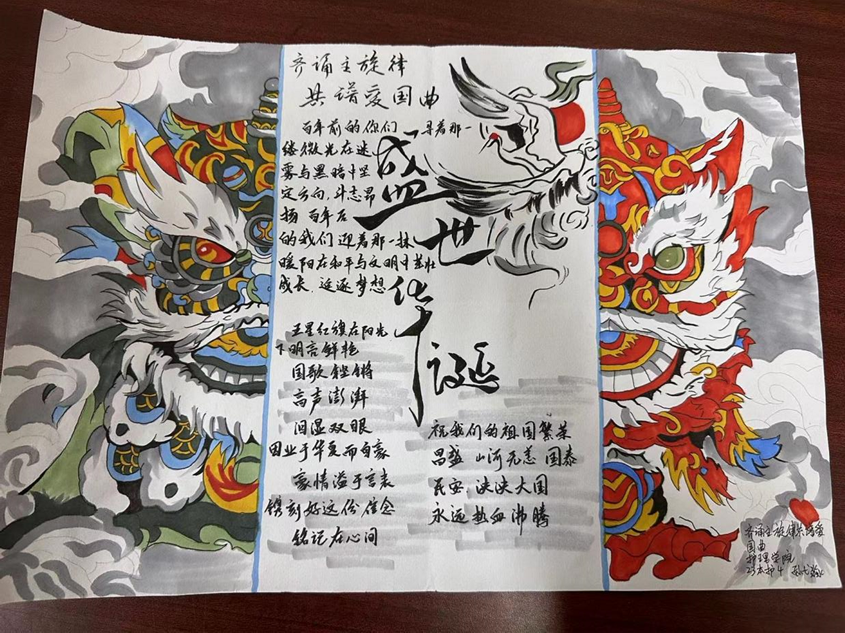 齐诵主旋律
共谱爱国曲
百年前的你们 寻着那一
缕微光在迷
雾与黑暗中坚
定方向,斗志昂
扬 百年后
的我们迎着那一抹
暖阳在和平与文明中茁壮
成长、逐梦想
盛世华诞
五星红旗在阳光
下明亮鲜艳
国歌铿锵
高声澎湃
泪湿双眼
因业于华夏而自豪
豪情溢于言表
镌刻好这份信念
铭记在心间
祝我们的祖国繁荣
昌盛 山河无恙 国泰
民安,泱泱大国
永远热血沸腾
齐诵主旋律共谱爱
国曲
护理学院
23本护4